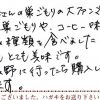 さんの巣ごもりの大ファンで
巣ごもりや、コーヒー味
種類を食べました
とても美味です。
野に行ったら購入し
ます。
ございました。ハガキをお送り下さい